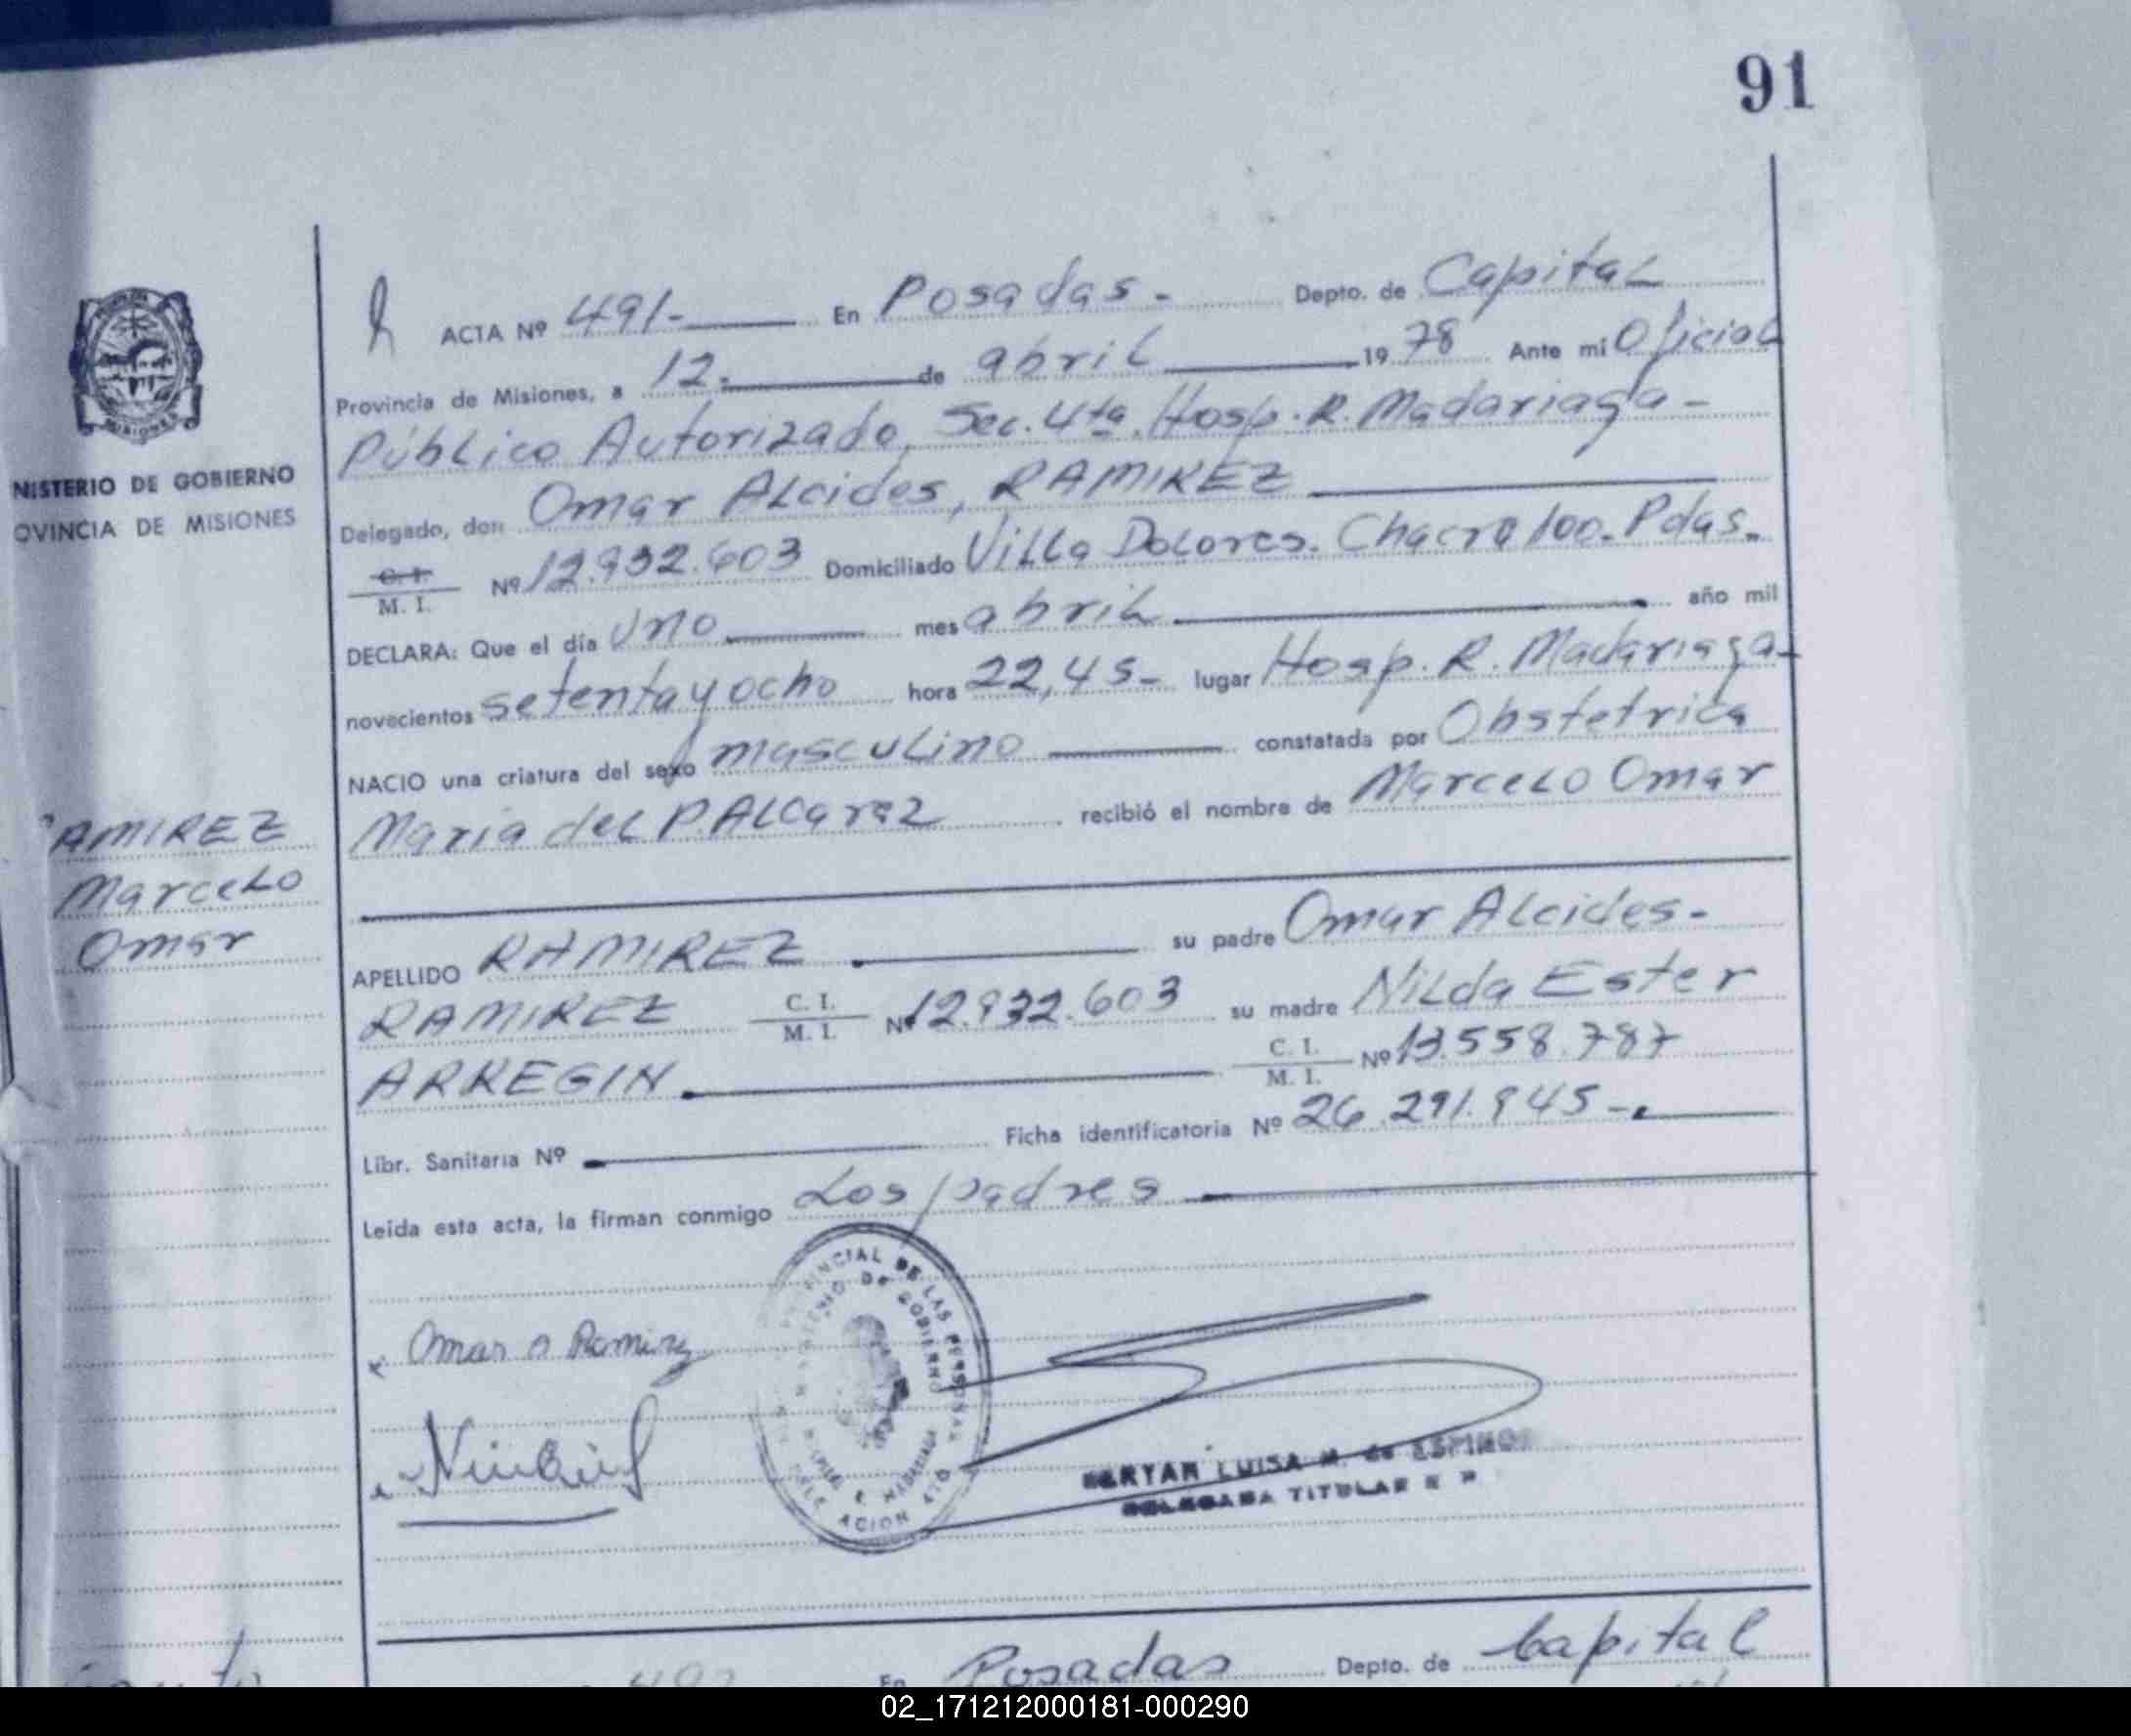 91
ACTA Nº 491.- En Posadas.- Depto. de Capital
Provincia de Misiones, a 12.- de abril 19 78 Ante mi Oficial
Público Autorizado, Sec. 4ta. Hosp. R. Madariaga-
Delegado, don Omar Alcides, RAMIREZ
C. I.
M. I. Nº 12.932.603 Domiciliado Villa Dolores. Chacra 100. Pdas.
DECLARA: Que el día uno mes abril año mil
novecientos setenta y ocho hora 22,45- lugar Hosp. R. Madariaga-
NACIO una criatura del sexo masculino constatada por Obstetrica
Maria del P. Alcaraz recibió el nombre de Marcelo Omar
APELLIDO RAMIREZ su padre Omar Alcides-
RAMIREZ C. I. M. I. Nº 12.932.603 su madre Nilda Ester
ARREGIN C. I. M. I. Nº 13.558.787
Libr. Sanitaria Nº Ficha identificatoria Nº 26.291.945-.
Leída esta acta, la firman conmigo Los padres
Omar A Ramirez
LUISA M. de ESPINO
DELEGADA TITULAR
NISTERIO DE GOBIERNO
OVINCIA DE MISIONES
MISIONES
AMIREZ
Marcelo
Omar
VINCIAL DE LAS PERSONAS
MINISTERIO DE GOBIERNO
HOSPITAL R. MADARIAGA
En Posadas Depto. de Capital
02_171212000181-000290